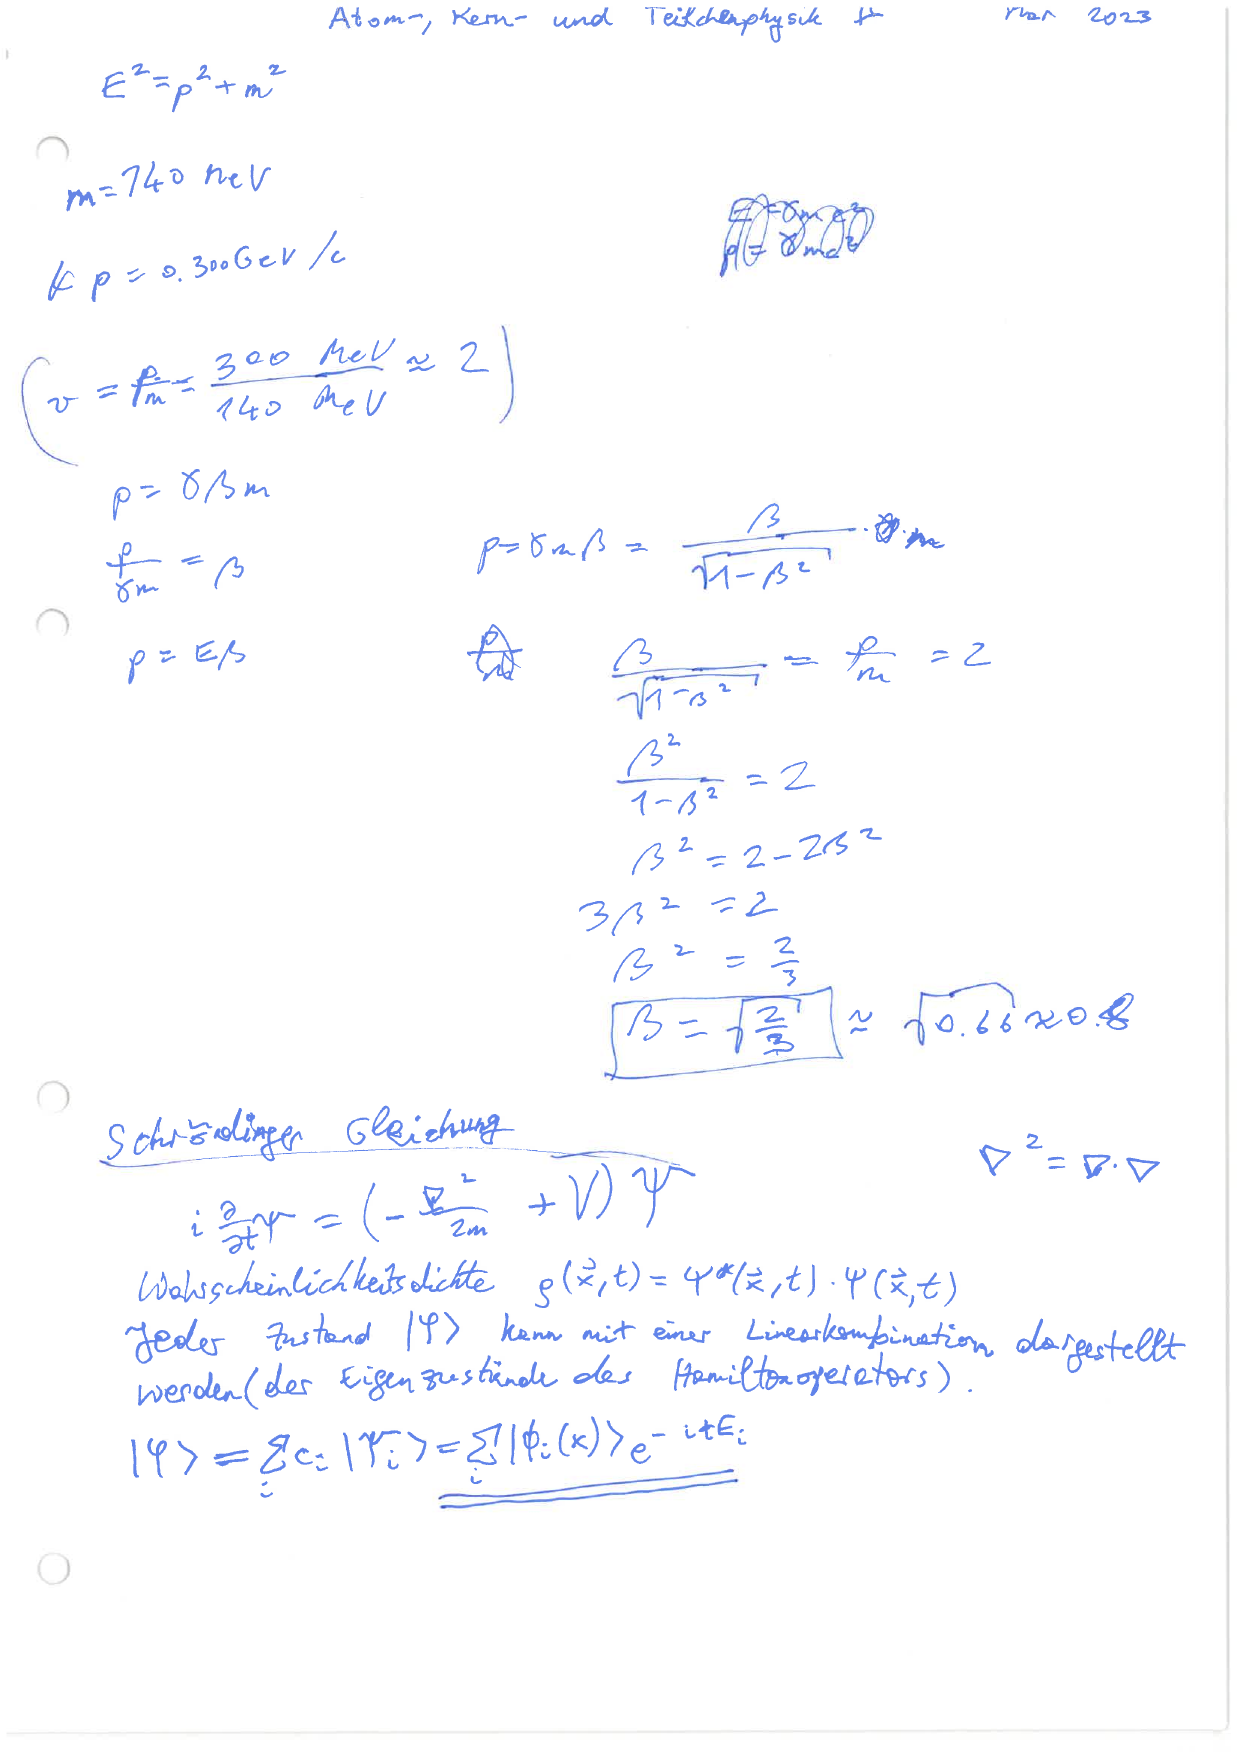 Atom-, Kern- und Teilchenphysik II Mai 2023
E² = p² + m²
m = 140 MeV
p = 0.300 GeV/c
(v = p/m = 300 MeV / 140 MeV ≈ 2)
p = γβm
p/γm = β
p = Eβ
E = γmc²
p = γmc²
p = γmβ = β/√(1-β²) · m
β/√(1-β²) = p/m = 2
β²/(1-β²) = 2
β² = 2 - 2β²
3β² = 2
β² = 2/3
β = √(2/3) ≈ √0.66 ≈ 0.8
Schrödinger Gleichung
∇² = ∇·∇
i ∂/∂t ψ = (-∇²/2m + V) Ψ
Wahrscheinlichkeitsdichte ρ(x⃗,t) = ψ*(x⃗,t) · ψ(x⃗,t)
Jeder Zustand |φ> kann mit einer Linearkombination dargestellt
werden (der Eigenzustände des Hamiltonoperators).
|φ> = Σ_i c_i |Ψ_i> = Σ_i |ϕ_i(x)> e^(-itE_i)